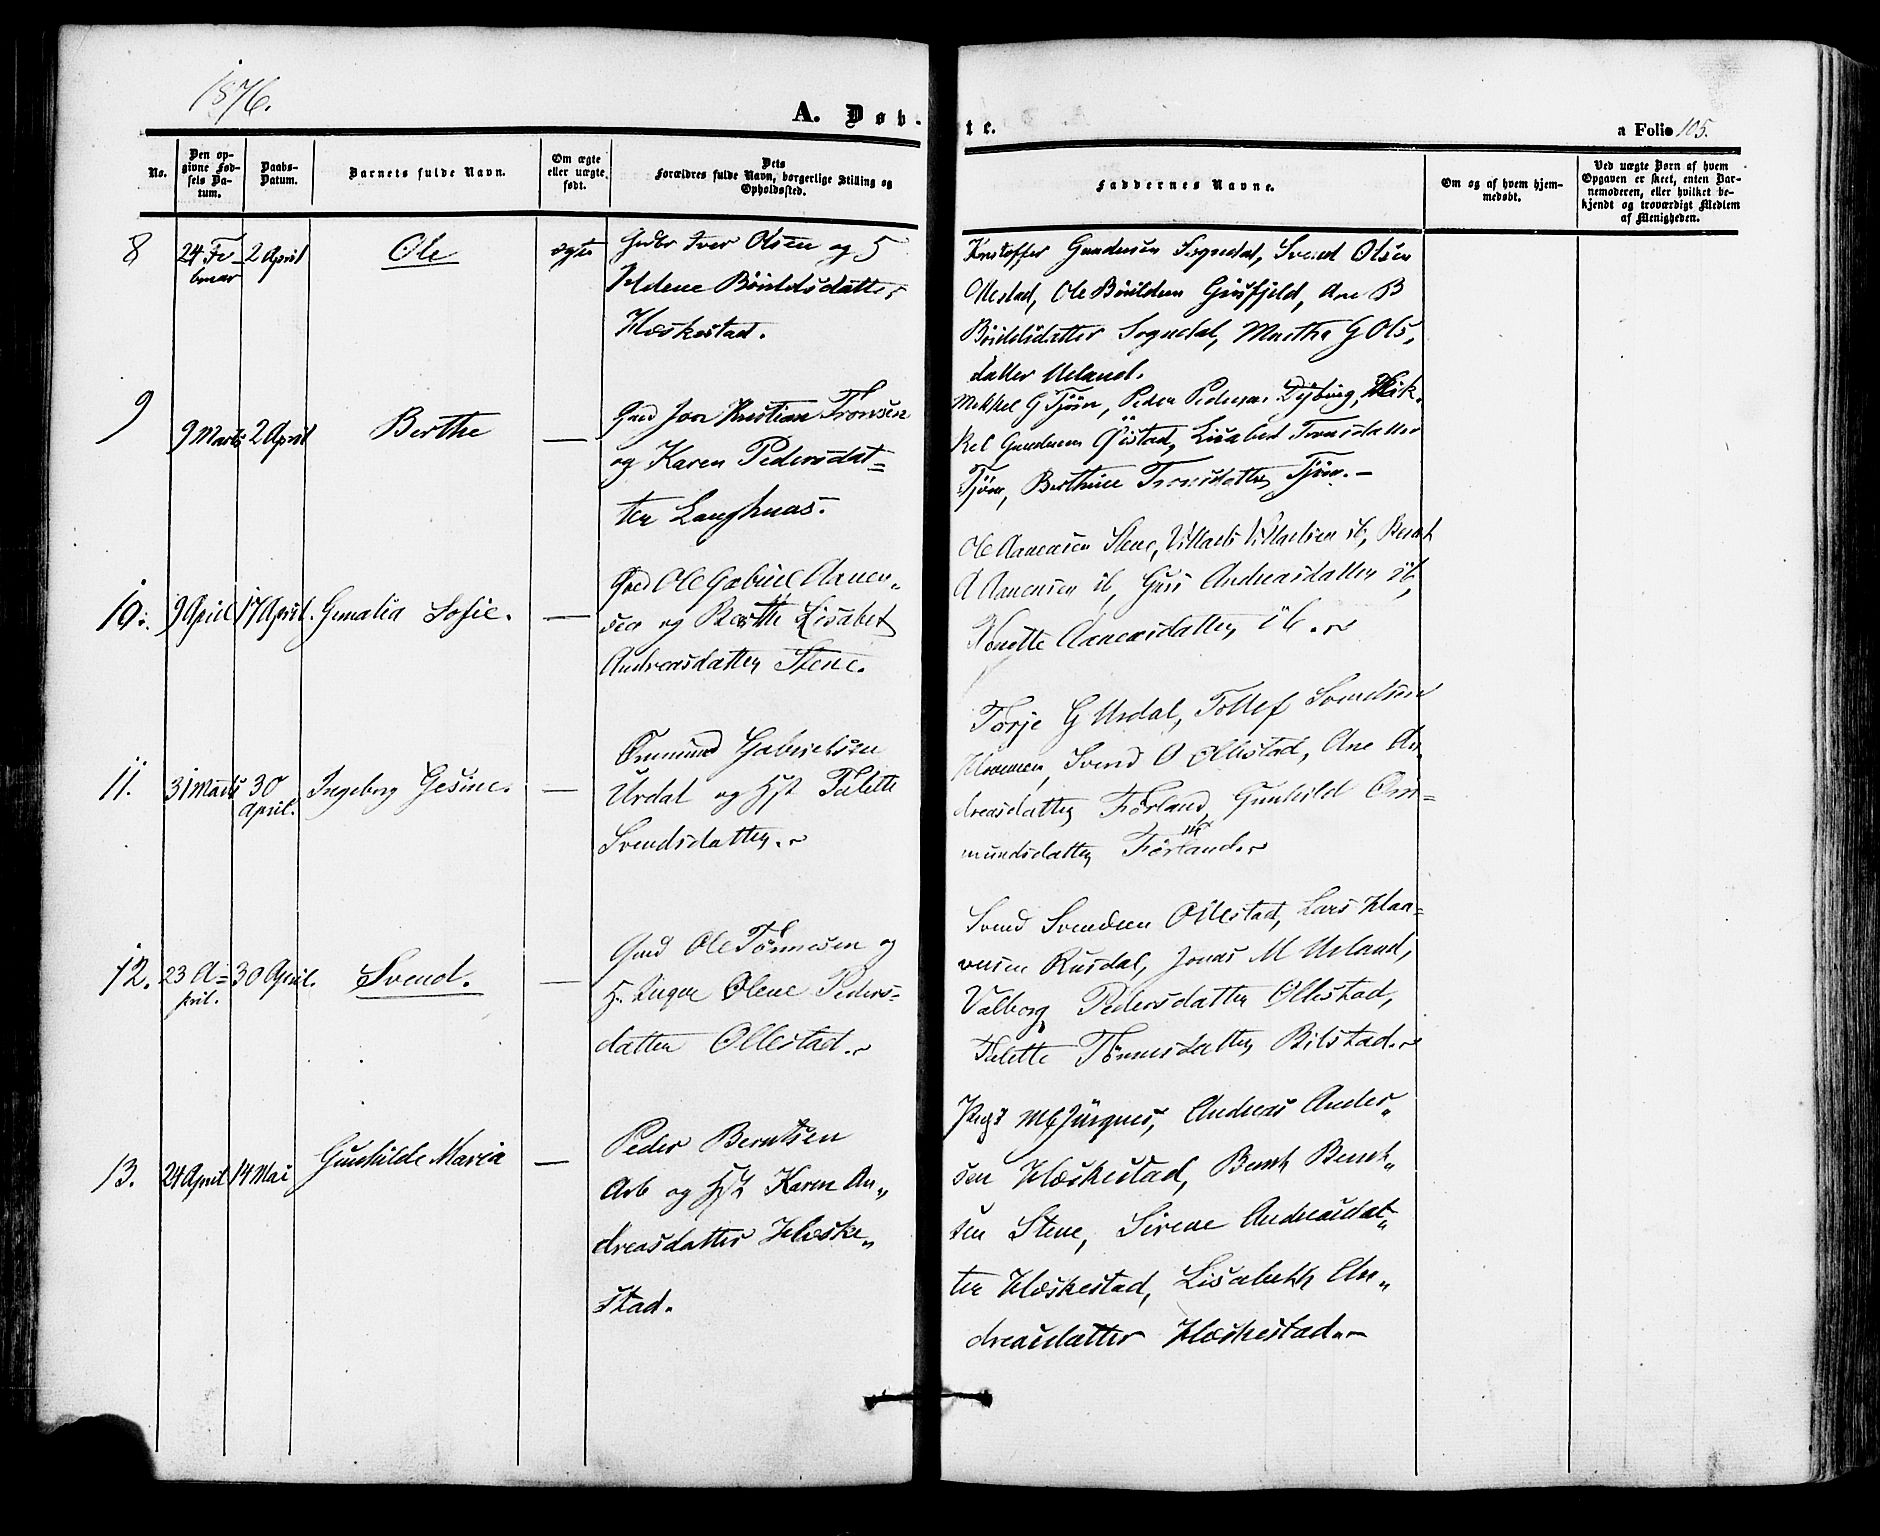 1876.
A. Døb-
te.
a Folio 105.
No.
Den op-
givne Fød-
sels Da-
tum.
Daabs-
Datum.
Barnets fulde Navn.
Om ægte
eller uægte
født.
Dets
Forældres fulde Navn, borgerlige Stilling og
Opholdssted.
Faddernes Navne.
Om og af hvem hjem-
medøbt.
Ved uægte Børn af hvem
Opgaven er skeet, enten Bar-
nemoderen, eller hvilket be-
kjendt og troværdigt Medlem
af Menigheden.
8
24 Fe-
bruar
2 April
Ole
ægte
Iver Olsen og
Helene Bøiuldsdatter
Hæskestad.
Kristoffer Gundersen Sogndal, Svend Olsen
Ollestad, Ole Bøiuldsen Ane B
Bøiuldsdatter Sogndal, Marthe G Ols-
datter Ueland.
9
9 Marts
2 April
Berthe
—
Gmd Jon Kristian Tronsen
og Karen Pedersdat=
ter Langhuus.
Mikkel G Tjørn, Peder Pedersen Dybing, Mik-
kel Gundersen Øistad, Lisabet Tronsdatter
Tjørn, Berthine Tronsdatter Tjørn.—
10.
9 April
17 April.
Gemalia Sofie.
—
Gmd Ole Gabriel Aanen-
sen og Berthe Lisabet
Andreasdatter Stene.
Ole Aanensen Stene, Villads Villadsen ib, Bernt
A Aanensen ib, Guri Andreasdatter ib,
Nonette Aanensdatter ib.
11.
31 Marts
30
April.
Ingeborg Gesine.
—
Ommund Gabrielsen
Urdal og Hst Talette
Svendsdatter.
Torje G Urdal, Tollef Svendsen
Svend O Ollestad, Ane An-
dreasdatter Førland, Gunhild Om=
mundsdatter Førland.
12.
23 A=
pril.
30 April.
Svend.
—
Gmd Ole Tønnesen og
H. Inger Olene Peders-
datter Ollestad.
Svend Svendsen Ollestad, Lars Haa=
versen Rusdal, Jonas M Ueland,
Valborg Pedersdatter Ollestad,
Talette Tønnesdatter Bilstad.
13.
24 April
14 Mai
Gunhilde Maria
—
Peder Berntsen
Arb og Hst Karen An-
dreasdatter Hæske-
stad.
Andreas Ander-
sen Hæskestad, Bernt Bernt-
sen Stene, Sirene Andreasdat-
ter Hæskestad, Lisabeth An-
dreasdatter Hæskestad.—